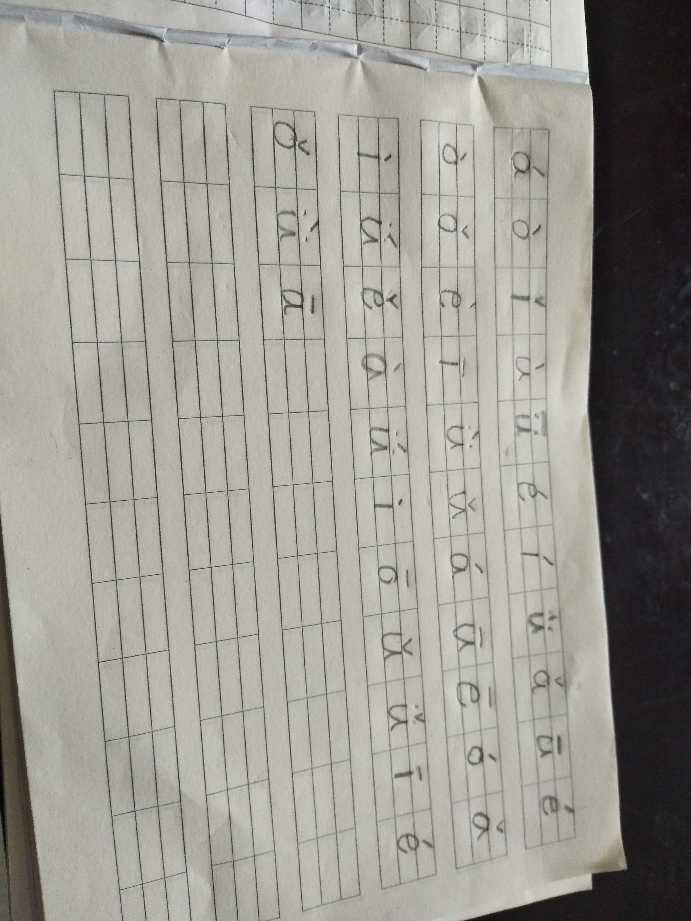 á ò ǐ ù ǖ é í ǚ ǎ ū é
ò ǒ è ī ǜ ǔ á ū ē ó ǎ
ì ǘ ě à ǘ ì ō ǔ ǚ ī é
ǒ ǜ ā